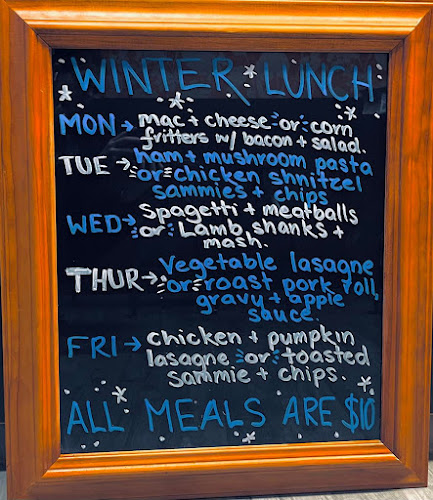 WINTER LUNCH
MON → mac + cheese or corn
fritters w/ bacon + salad.
TUE → ham + mushroom pasta
or chicken shnitzel
sammies + chips
WED → Spagetti + meatballs
or Lamb shanks +
mash.
THUR → Vegetable lasagne
or roast pork roll,
gravy + apple
sauce.
FRI → chicken + pumpkin
lasagne or toasted
sammie + chips.
ALL MEALS ARE $10